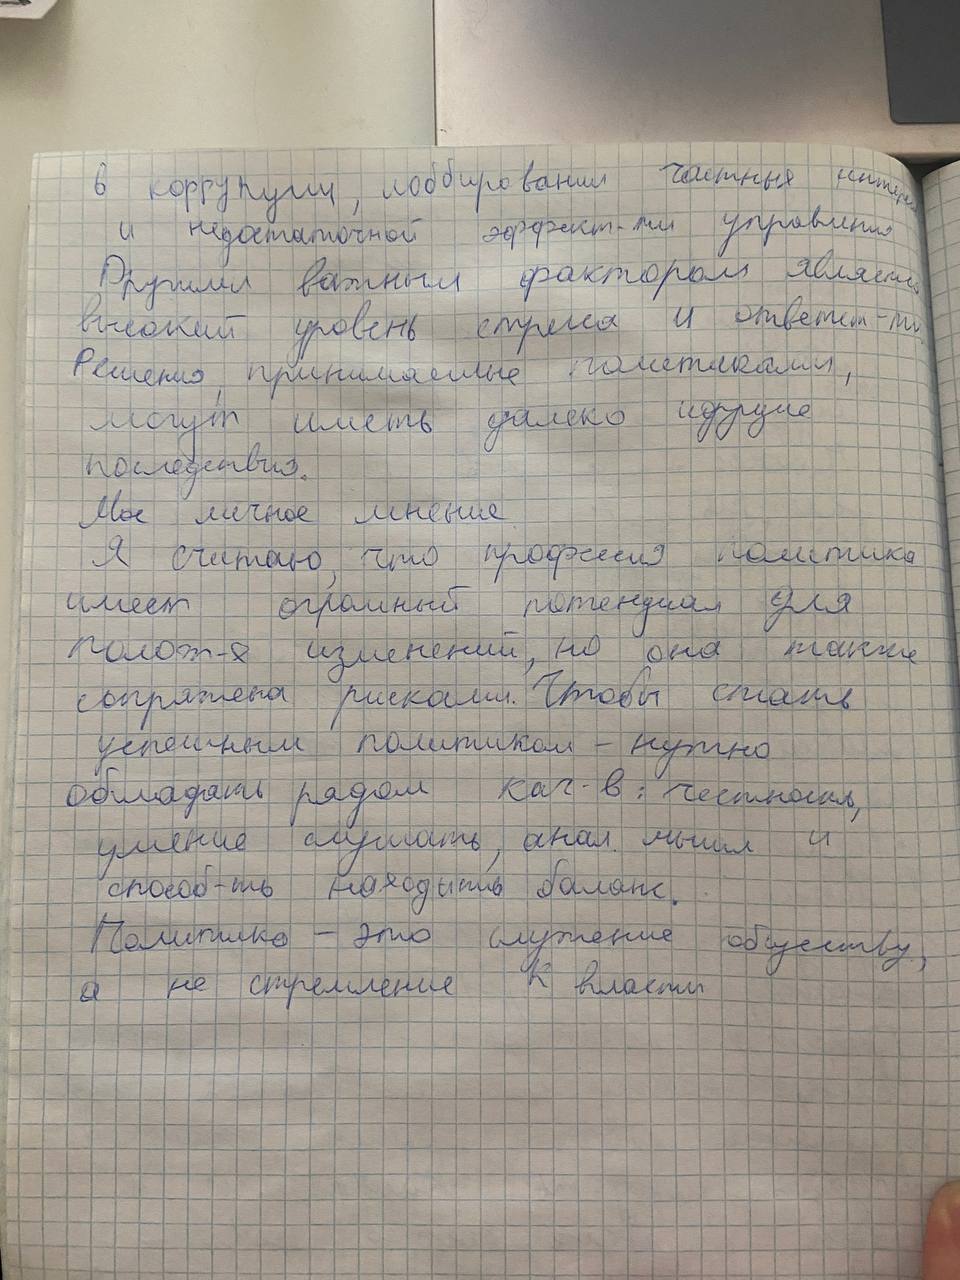 в коррупции, лоббировании частных
и недостаточной эффект-ти управления
Другим важным фактором является
высокий уровень стресса и ответст-ти.
Решения, принимаемые политиками,
могут иметь далеко идущие
последствия.
Мое личное мнение
Я считаю, что профессия политика
имеет огромный потенциал для
полож-х изменений, но она также
сопряжена рисками. Чтобы стать
успешным политиком – нужно
обладать рядом кач-в: честность,
умение слушать, анал. мышл и
способ-ть находить баланс.
Политика – это служение обществу,
а не стремление к власти